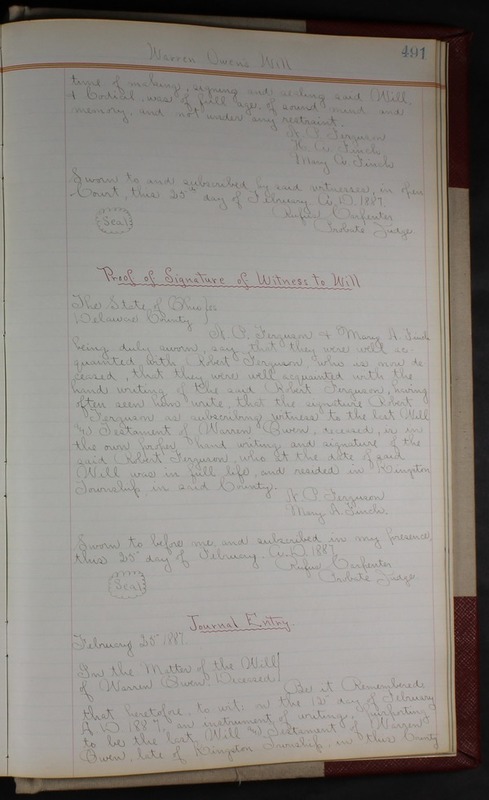 Warren Owen's Will
491
time of making, signing and sealing said Will
& Codicil, was of full age, of sound mind and
memory, and not under any restraint.
N. P. Ferguson
H. A. Finch
Mary A. Finch
Sworn to and subscribed by said witnesses, in open
Court, this 25" day of February A.D. 1887.
Rufus Carpenter
Probate Judge
Seal
Proof of Signature of Witness to Will
The State of Ohio } ss
Delaware County
N. P. Ferguson & Mary A. Finch
being duly sworn, say, that they were well ac-
quainted with Robert Ferguson, who is now de-
ceased, that they were well acquainted with the
hand writing of the said Robert Ferguson, having
often seen him write, that the signature Robert
Ferguson as subscribing witness to the last Will
and Testament of Warren Owen, deceased, is in
the own proper hand writing and signature of the
said Robert Ferguson, who at the date of said
Will was in full life, and resided in Kingston
Township in said County.
N. P. Ferguson
Mary A. Finch.
Sworn to before me, and subscribed in my presence,
this 25" day of February. A.D. 1887.
Rufus Carpenter
Probate Judge
Seal
Journal Entry.
February 25" 1887.
In the Matter of the Will }
of Warren Owen. Deceased
Be it Remembered
that heretofore, to wit, on the 12" day of February
A.D. 1887, an instrument of writing, purporting
to be the last Will and Testament of Warren
Owen, late of Kingston Township, in this County